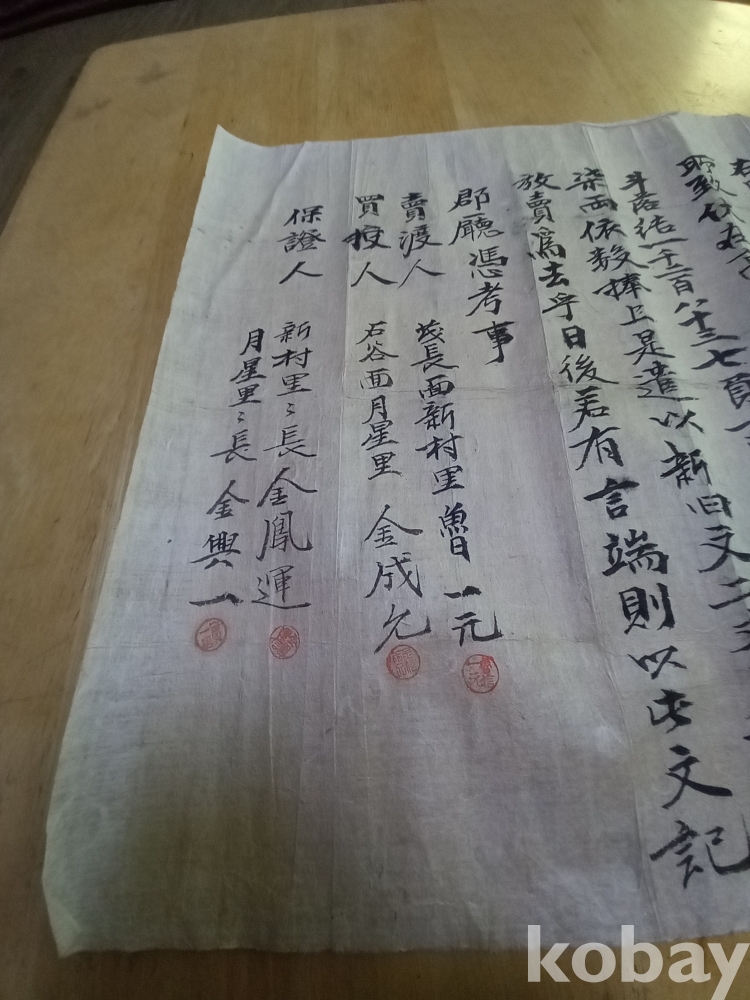 所致伏在
斗落結一千二百八十三七負
柒兩依數捧上是遣以新旧文二
放賣爲去乎日後若有言端則以此文記
郡廳憑考事
賣渡人 茂長面新村里 魯一元
買授人 石谷面月星里 金成允
保證人 新村里〻長金鳳運
月星里〻長金興一
kobay